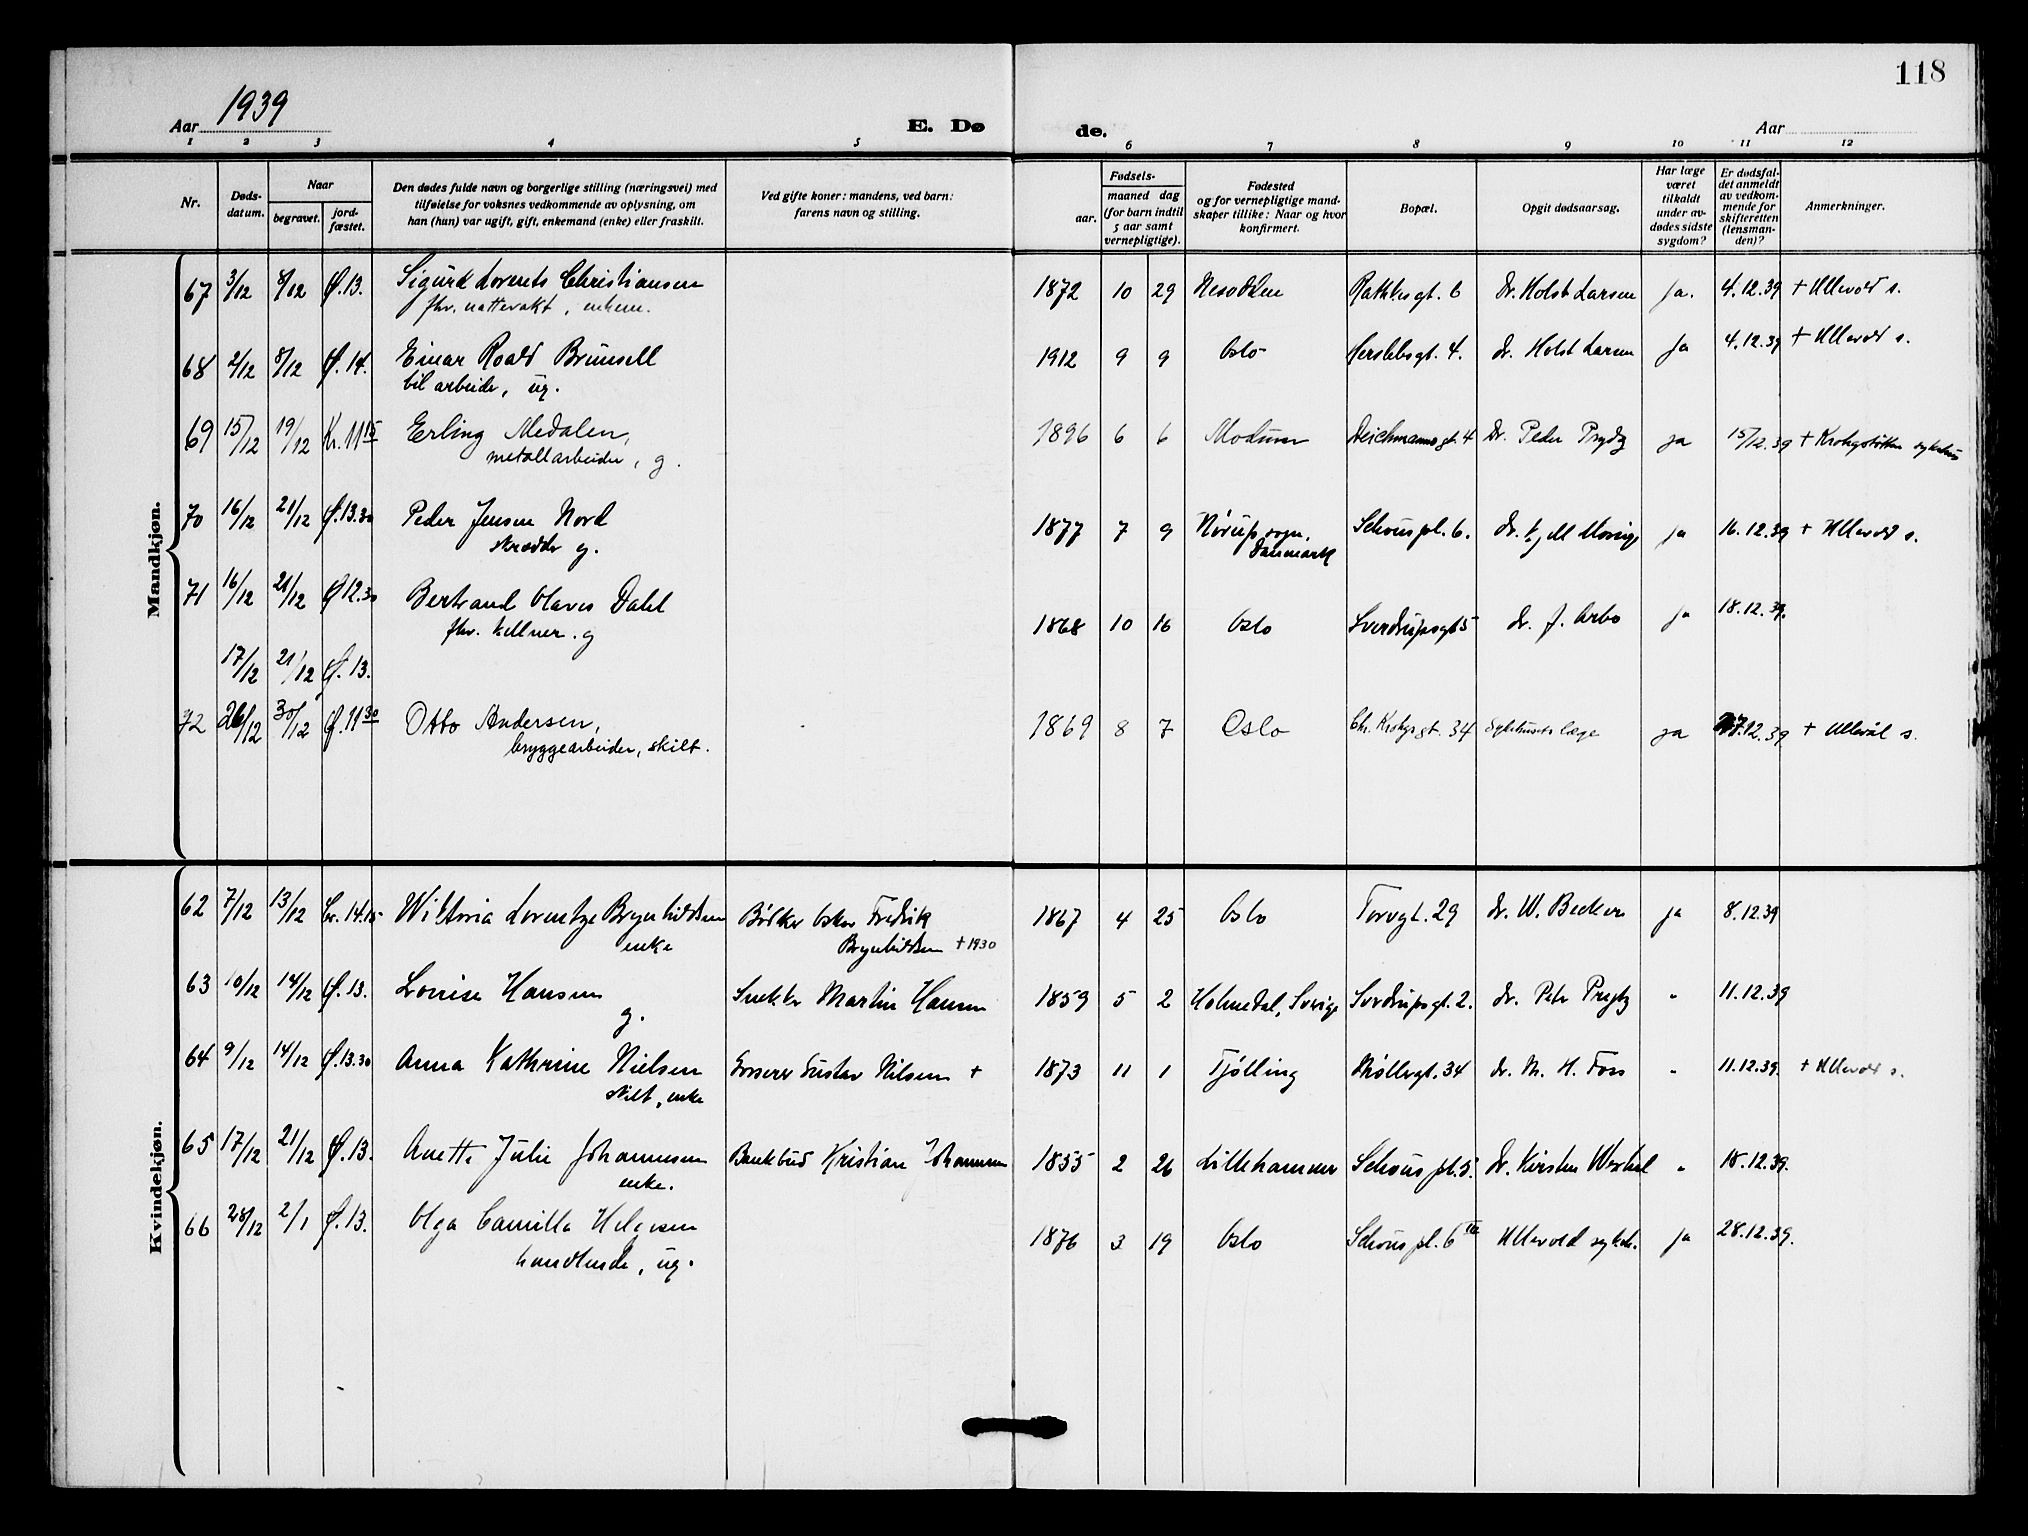 118
Aar 1939
E. Dø de.
Aar
1 2 3 4 5 6 7 8 9 10 11 12
Nr.
Døds-
datum.
Naar
begravet.
jord-
fæstet.
Den dødes fulde navn og borgerlige stilling (næringsvei) med
tilføielse for voksnes vedkommende av oplysning, om
han (hun) var ugift, gift, enkemand (enke) eller fraskilt.
Ved gifte koner: mandens, ved barn:
farens navn og stilling.
Fødsels-
aar.
maaned dag
(for barn indtil
5 aar samt
vernepligtige).
Fødested
og for vernepligtige mand-
skaper tillike: Naar og hvor
konfirmert.
Bopæl.
Opgit dødsaarsag.
Har læge
været
tilkaldt
under av-
dødes sidste
sygdom?
Er dødsfal-
det anmeldt
av vedkom-
mende for
skifteretten
(lensman-
den)?
Anmerkninger.
Mandkjøn.
67 3/12 8/12 Ø.13. Sigurd Lorents Christiansen 1872 10 29 Nesodden Rathkesgt. 6 Dr. Holst Larsen Ja. 4.12.39 + Ullevold s.
fhv. nattevakt, enkem.
68 2/12 8/12 Ø.14. Einar Roald Brunsell 1912 9 9 Oslo Herslebsgt. 4. Dr. Holst Larsen Ja 4.12.39 + Ullevold s.
bilarbeider, ug.
69 15/12 19/12 Kr. 11 15 Erling Medalen, 1896 6 6 Modum Deichmannsgt. 4 Dr. Peder Prydz ja 15/12.39 + Krohgstøtten sykehus
metallarbeider, g.
70 16/12 21/12 Ø.13.30 Peder Jensen Nord 1877 7 9 Nørup sogn, Schouspl. 6. Dr. Kjell ja 16.12.39 + Ullevold s.
Danmark
skredder g.
71 16/12 21/12 Ø 12.30 Bertrand Olaves Dahl 1868 10 16 Oslo Sverdrupsgt 5 Dr. J. Arbo ja 18.12.39.
fhv. kellner. g
17/12 21/12 Ø.13.
72 26/12 30/12 Ø.11 30 Otto Andersen, 1869 8 7 Oslo Chr. Krohgsgt. 34 Sykehusets læge ja 27.12.39 + Ullevål s.
bryggearbeider, skilt.
Kvindekjøn.
62 7/12 13/12 Cr. 14.15 Viktoria Lorentze Brynhildsen Bødker Oskar Fredrik 1867 4 25 Oslo Torvgt. 29 Dr. W. Becker ja 8.12.39
enke Brynhildsen + 1930
63 10/12 14/12 Ø.13. Lovise Hansen Snekker Martin Hansen 1859 5 2 Holmedal, Sverige Sverdrupsgt. 2. Dr. Peter Prydz " 11.12.39
g.
64 9/12 14/12 Ø.13.30 Anna Kathrine Nielsen Gustav Nilsen + 1873 11 1 Tjølling Møllergt. 34 Dr. M. H. Foss " 11.12.39. + Ullevold s.
skilt, enke
65 17/12 21/12 Ø.13. Anette Julie Johannesen Bankbud Kristian Johannesen 1855 2 26 Lillehammer Schous pl. 5. Dr. Kirsten " 18.12.39.
enke.
66 28/12 2/1 Ø.13. Olga Camilla Helgesen 1876 3 19 Oslo Schous pl. 6 III Ullevold sykeh. ja 28.12.39.
handlende, ug.